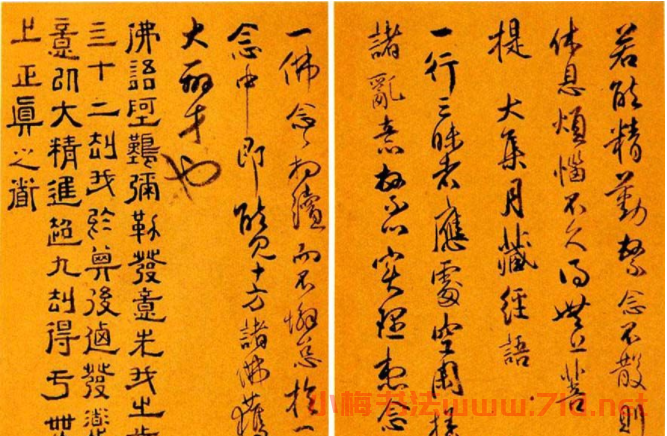 若能精勤繫念不散則
休息煩惱不久得無上菩
提 大集月藏經語
一行三昧者應處空閑捨
諸亂意繫心實理想念
一佛念念相續而不懈怠於一
念中即能見十方諸佛獲
大辯才也
佛語阿難彌勒發意先我之前
三十二劫我於其後
意以大精進超九劫得
上正真之道
小梅书法www.71d.net